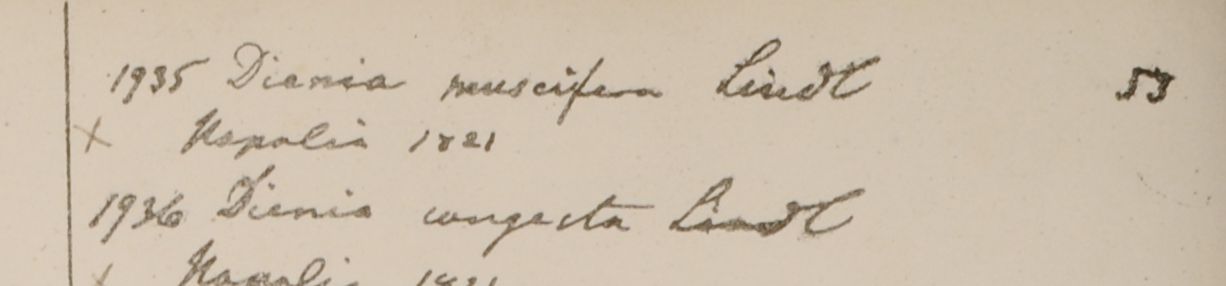 1935 Dienia muscifera Lindl 53
x Napalia 1821
1936 Dienia congesta Lindl
x Napalia 1821